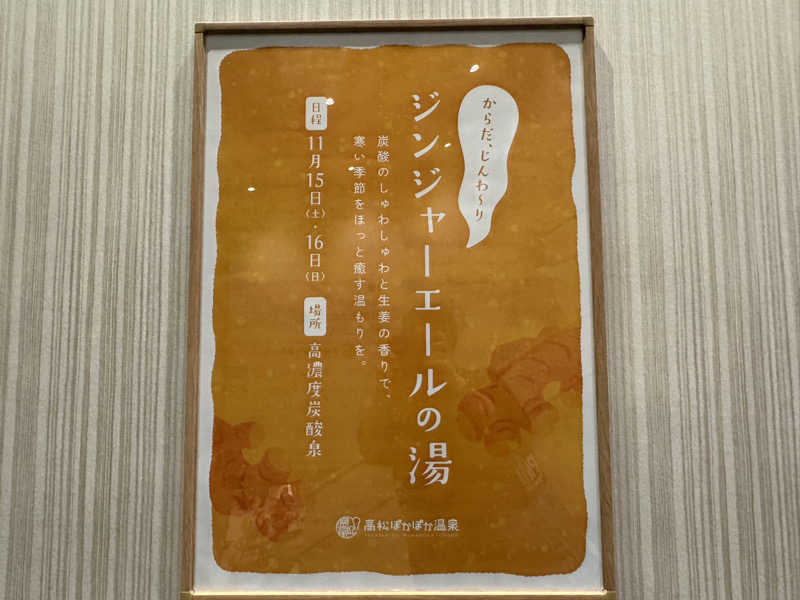 からだ、じんわ〜り
ジンジャーエールの湯
炭酸のしゅわしゅわと生姜の香りで、
寒い季節をほっと癒す温もりを。
日程
11月15日(土)・16日(日)
場所
高濃度炭酸泉
高松ぽかぽか温泉